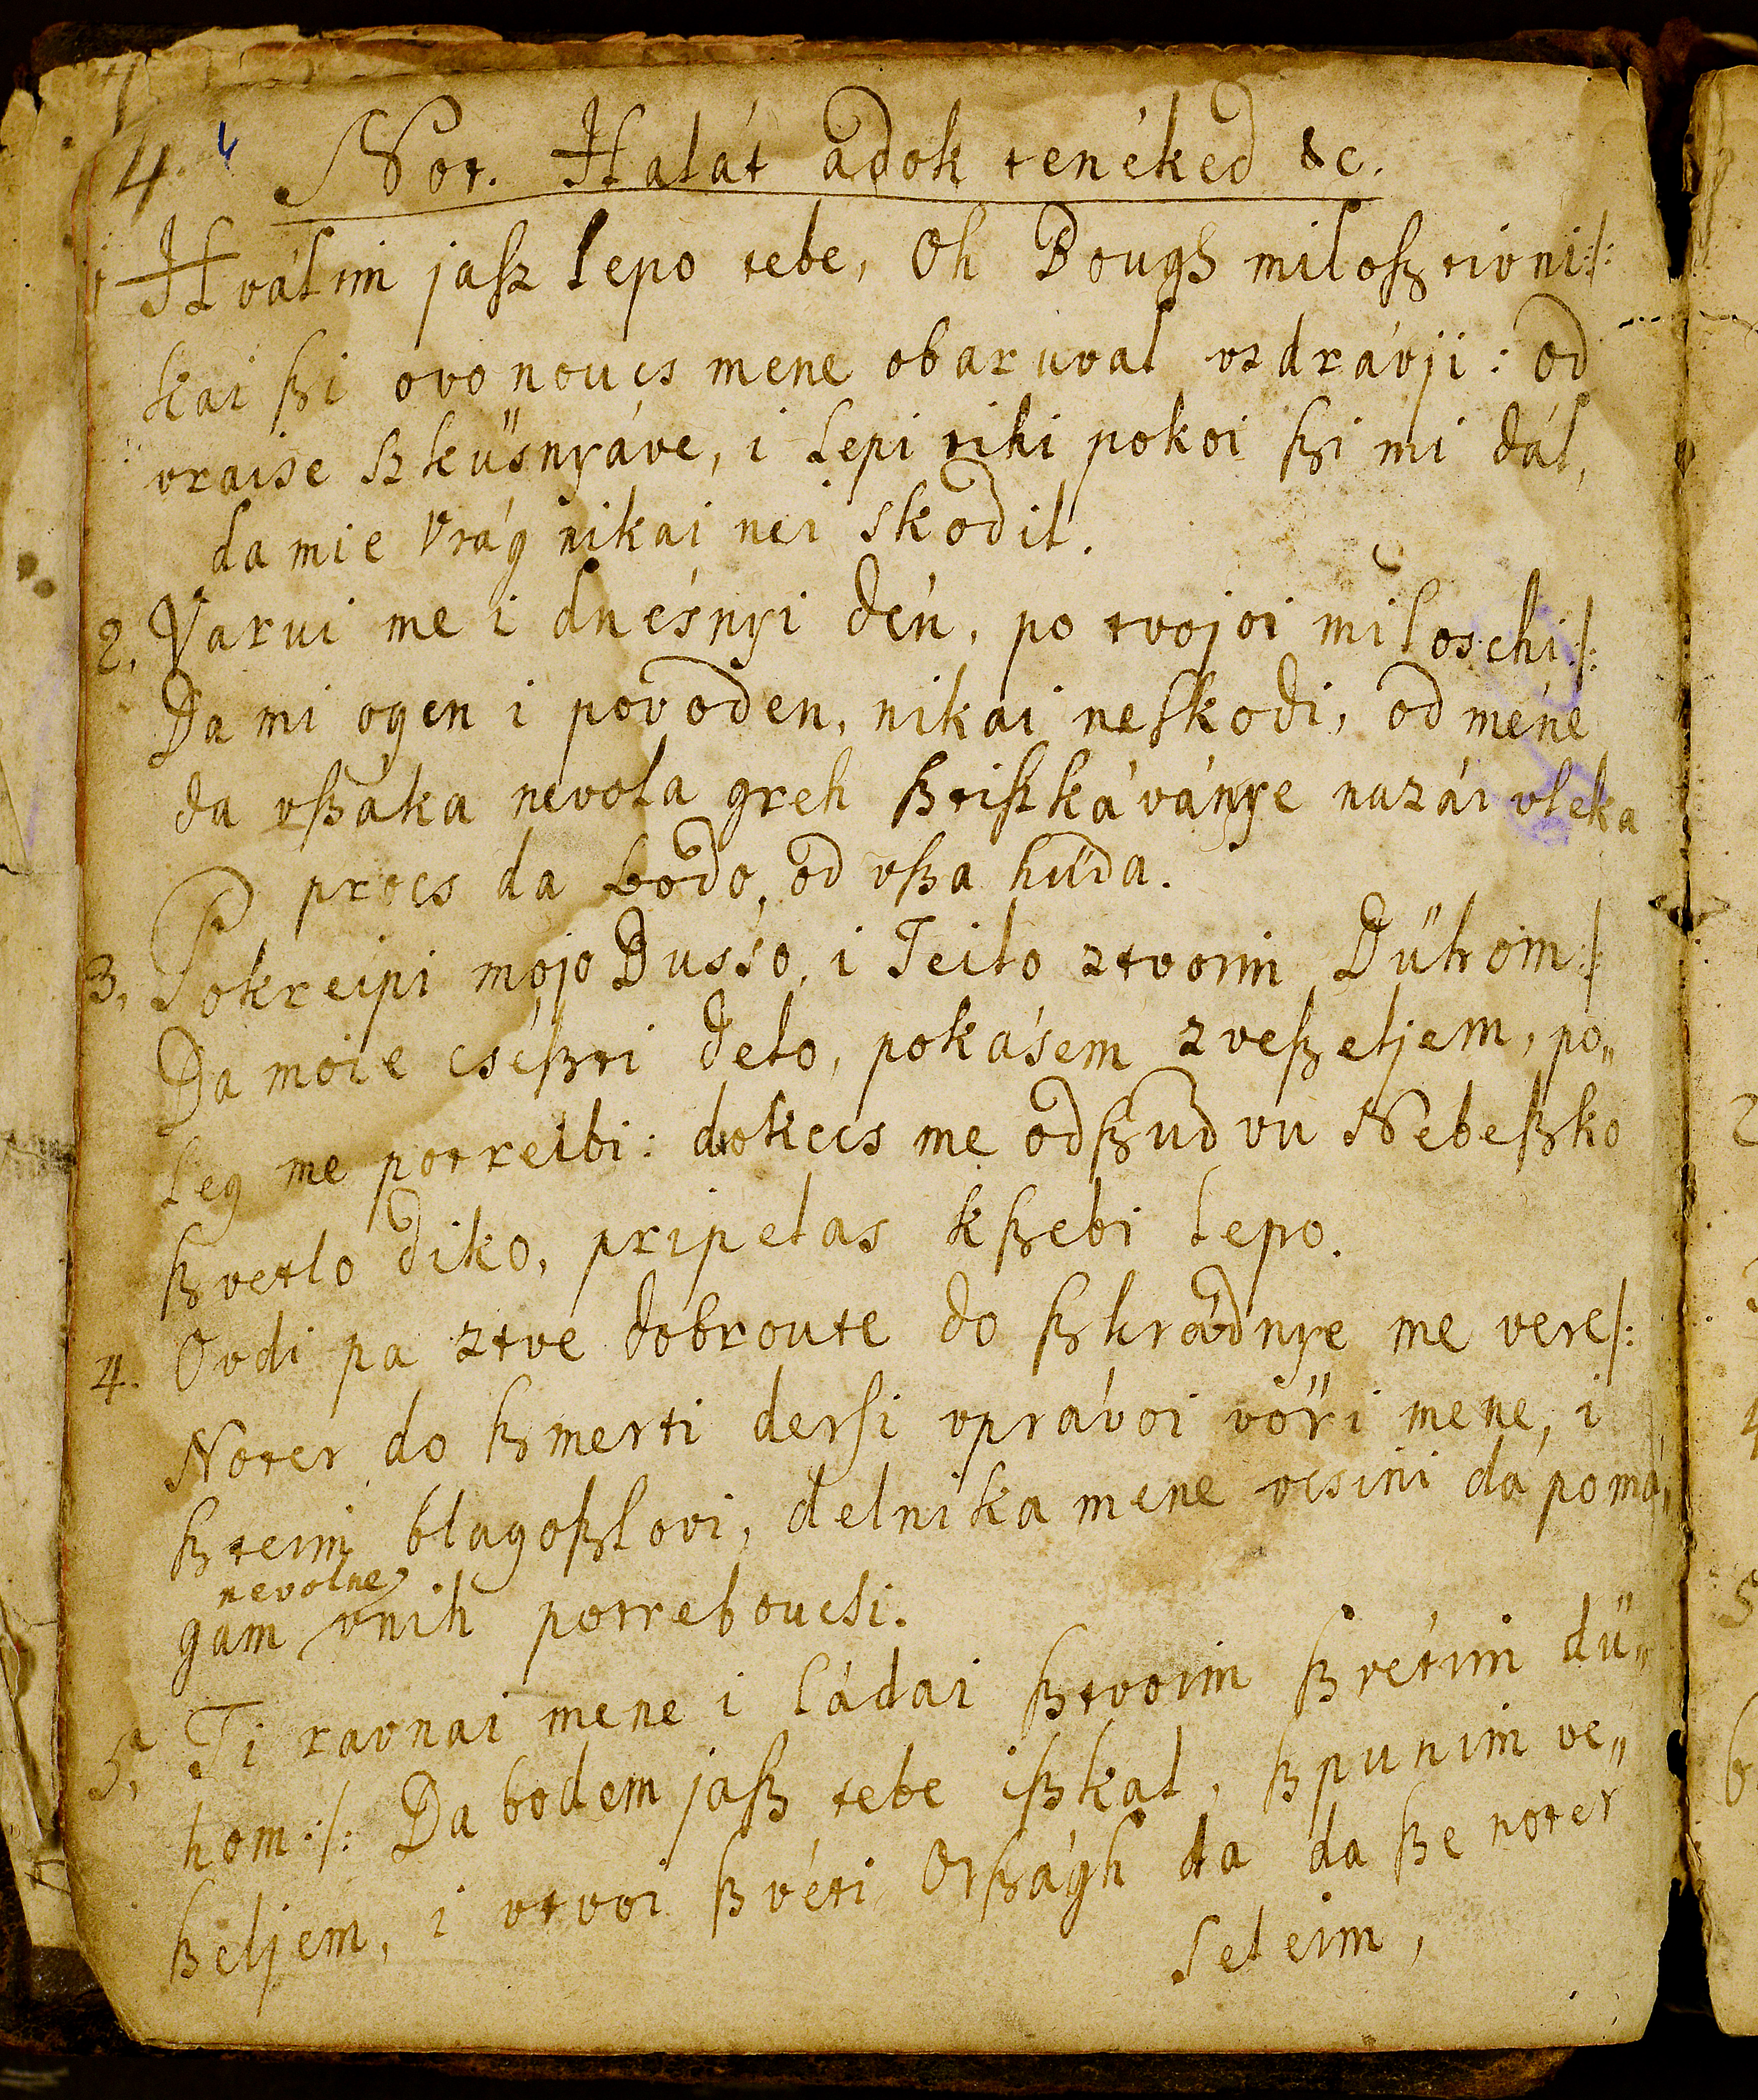 4. Not. Halát adok tenéked &c.
1 Hválim jasz lepo tebe, Oh Bough miloſztivni :/:
kai ſzi ovo noucs mene obaruval vzdrávji : od
vraise ſzküsnyáve, i lepi tihi pokoi ſzi mi dál,
da mie vrág nikai nei skodil.
2. Varui me i dnésnyi dén, po tvojoi miloschi :/:
Da mi ogen i povoden, nikai neſkodi, od méne
da vſzáka nevola greh ſztiſzkáványe nazái vleka
procs da bodo, od vſza hüda.
3. Pokreipi mojo Dussо, i Teilo ztvoim Dühom :/:
Da moie cséſzti delo, pokásem zveſzeljem, po„
leg me potreibi : dokecs me odſzud vu Nebeſzko
ſzvetlo diko, pripelas kſzebi lepo.
4. Ovdi pa ztve dobroute do ſzhrádnye me vere :/:
Noter do ſzmerti derſi vprávoi vöri mene, i
ſzteim blagoſzlovi, delnika mene vcsini da pomá„
nevolne
gam vnih potreboucsi.
5. Ti ravnai mene i ládai ſztvoim ſzvétim dü„
hom :/: Da bodem jaſz tebe iſzkal, ſzpunim ve„
ſzeljem, i vtvoi ſzvéti Orſzágh da da ſze noter
seleim,